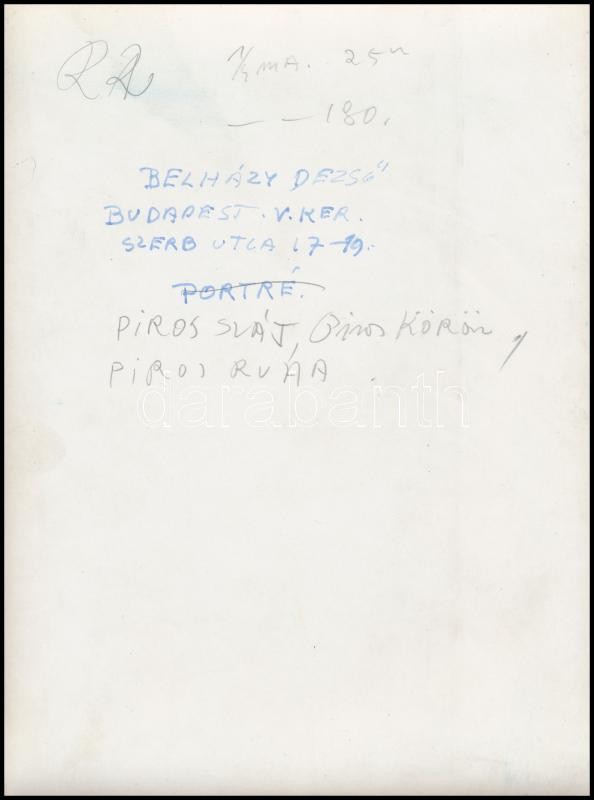 RA 1/1 MA. 25
— — 180.
BELHÁZY DEZSŐ
BUDAPEST. V. KER.
SZERB UTCA 17-19.
PORTRÉ.
PIROS SZÁJ, Piros KÖRÖM,
PIROS RUHA
darabanth